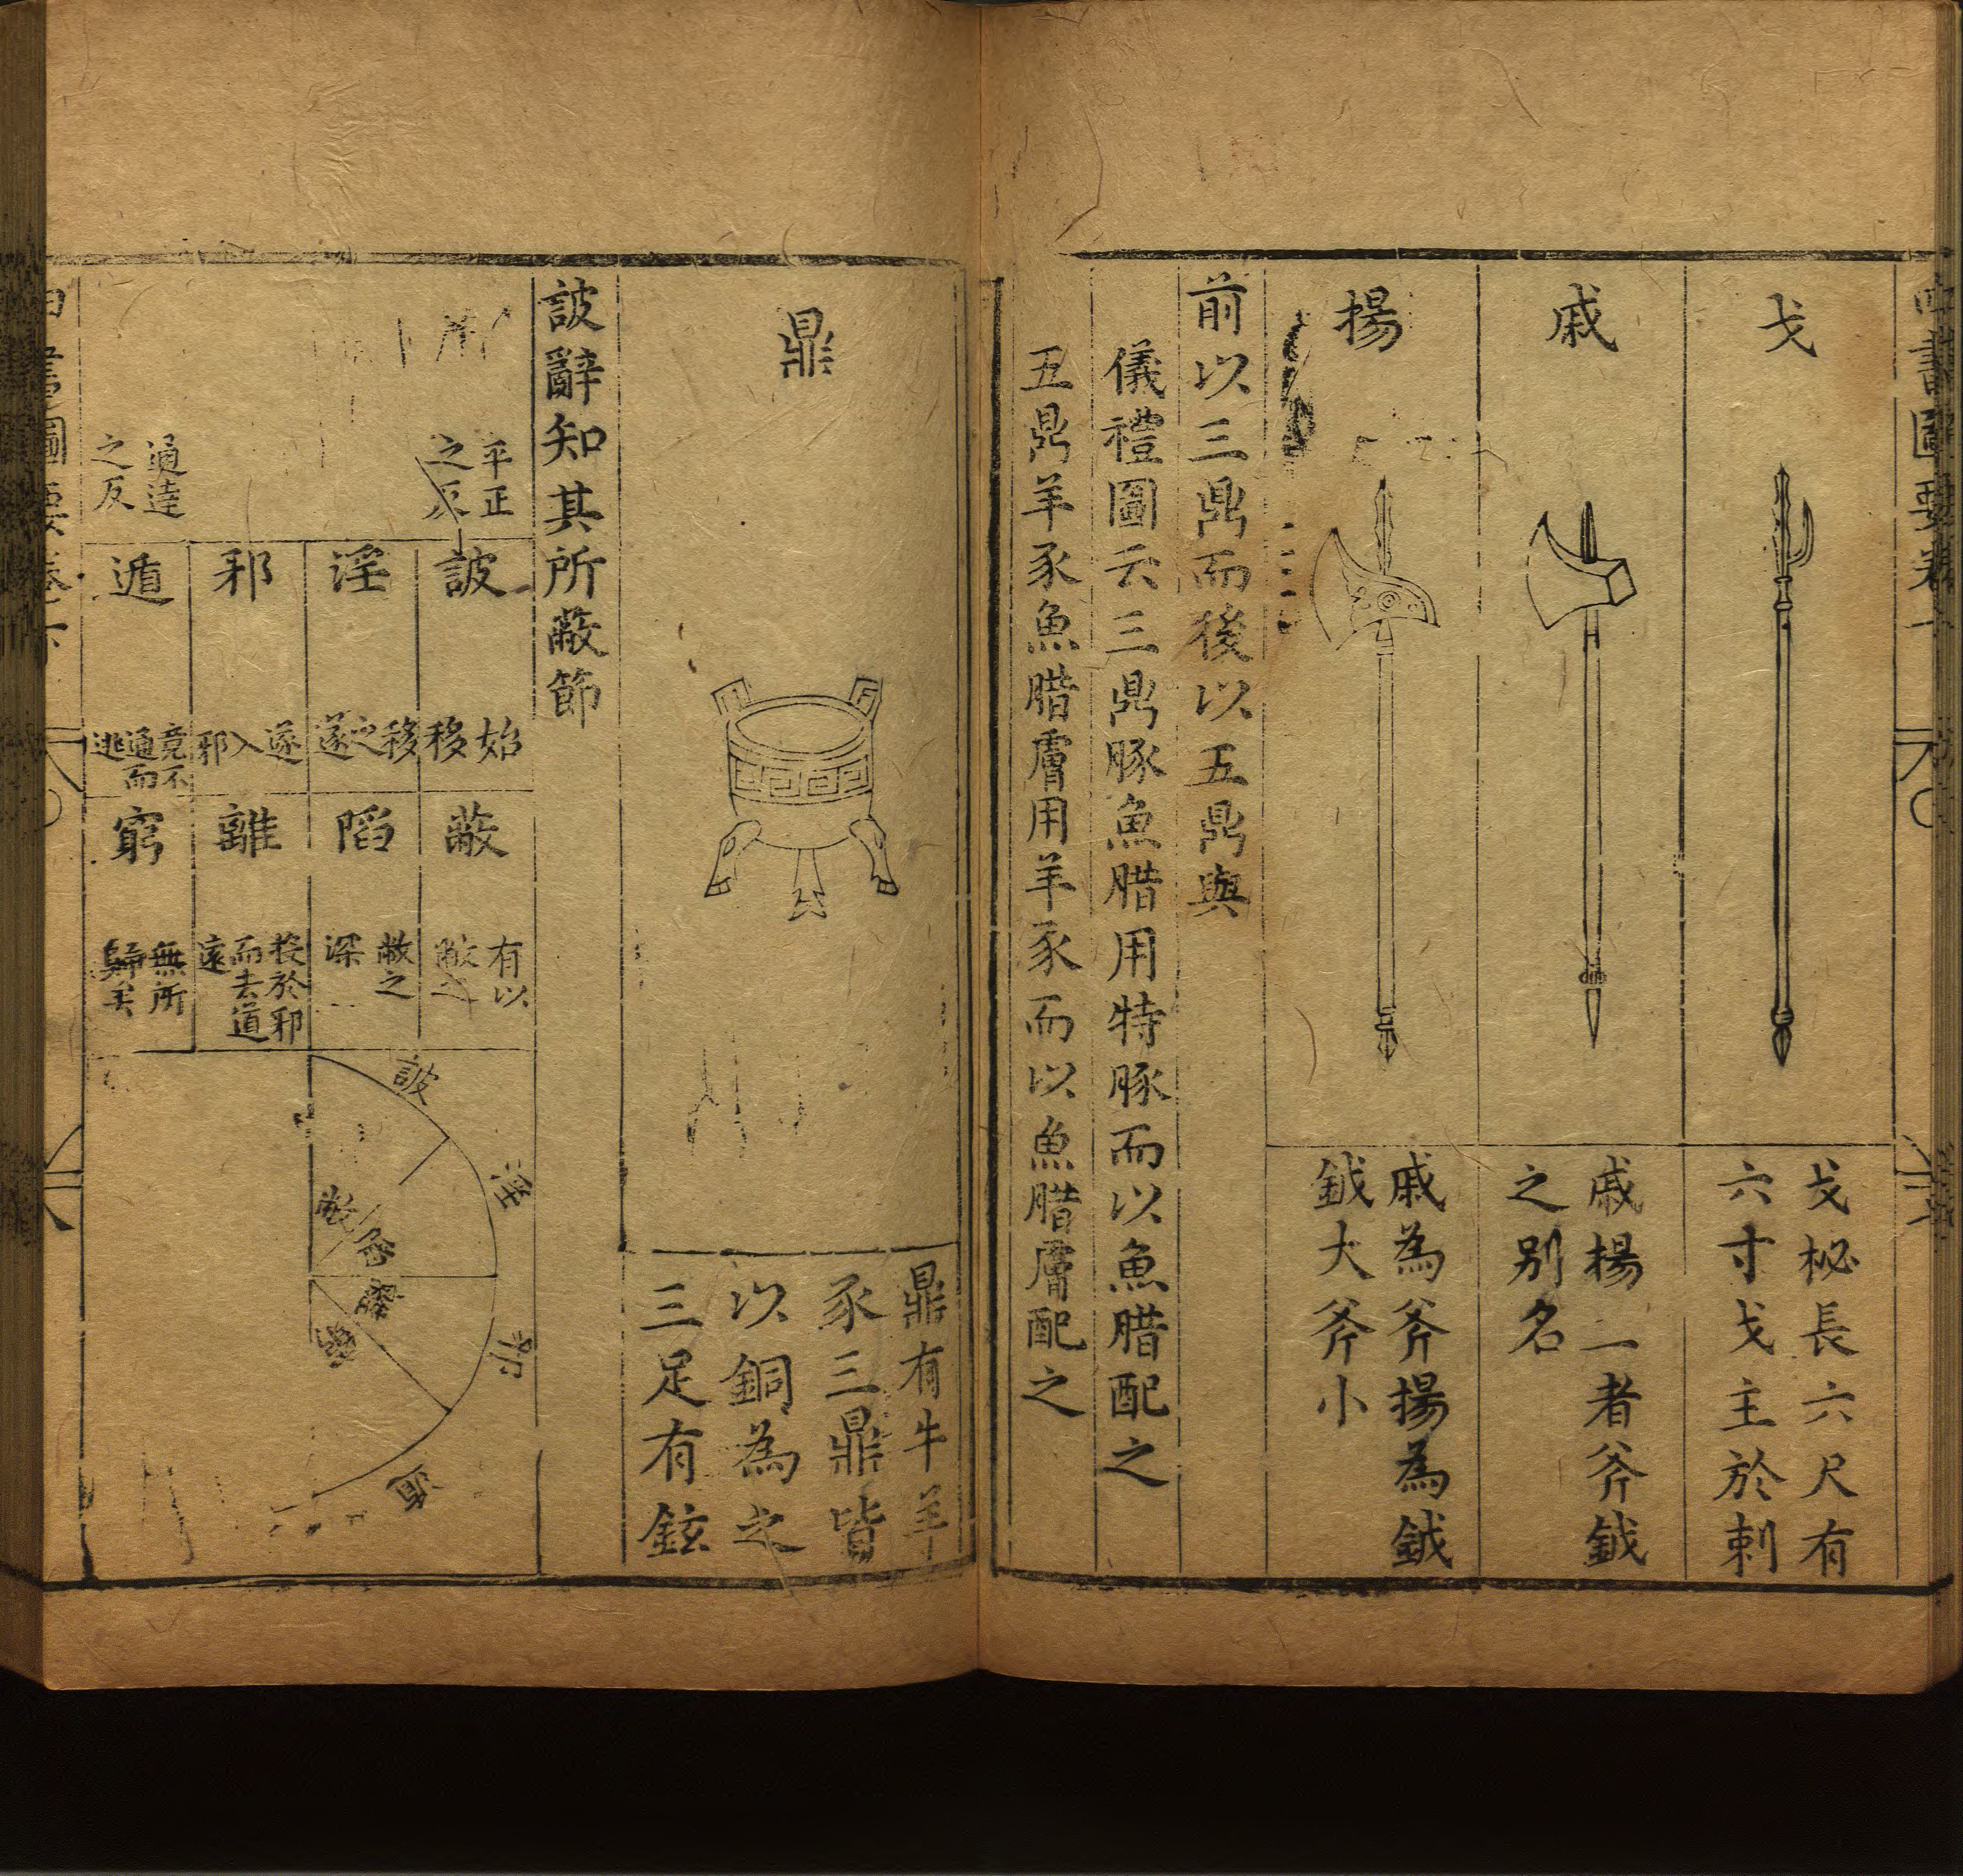 戈
戈柲長六尺有
六寸戈主於刺
戚
戚揚二者斧鉞
之別名
揚
戚為斧揚為鉞
鉞大斧小
前以三鼎而後以五鼎與
儀禮圖云三鼎豚魚腊用特豚而以魚腊配之
五鼎羊豕魚腊膚用羊豕而以魚腊膚配之
鼎
鼎有牛羊
豕三鼎皆
以銅為之
三足有鉉
詖辭知其所蔽節
平正
之反
詖
始
移
蔽
有以
蔽之
淫
移
之
遂
陷
蔽之
深
邪
遂
入
邪
離
投於邪
而去道
遠
通達
之反
遁
竟不
通而
逃
窮
無所
歸矣
詖
淫
邪
遁
蔽
陷
離
窮